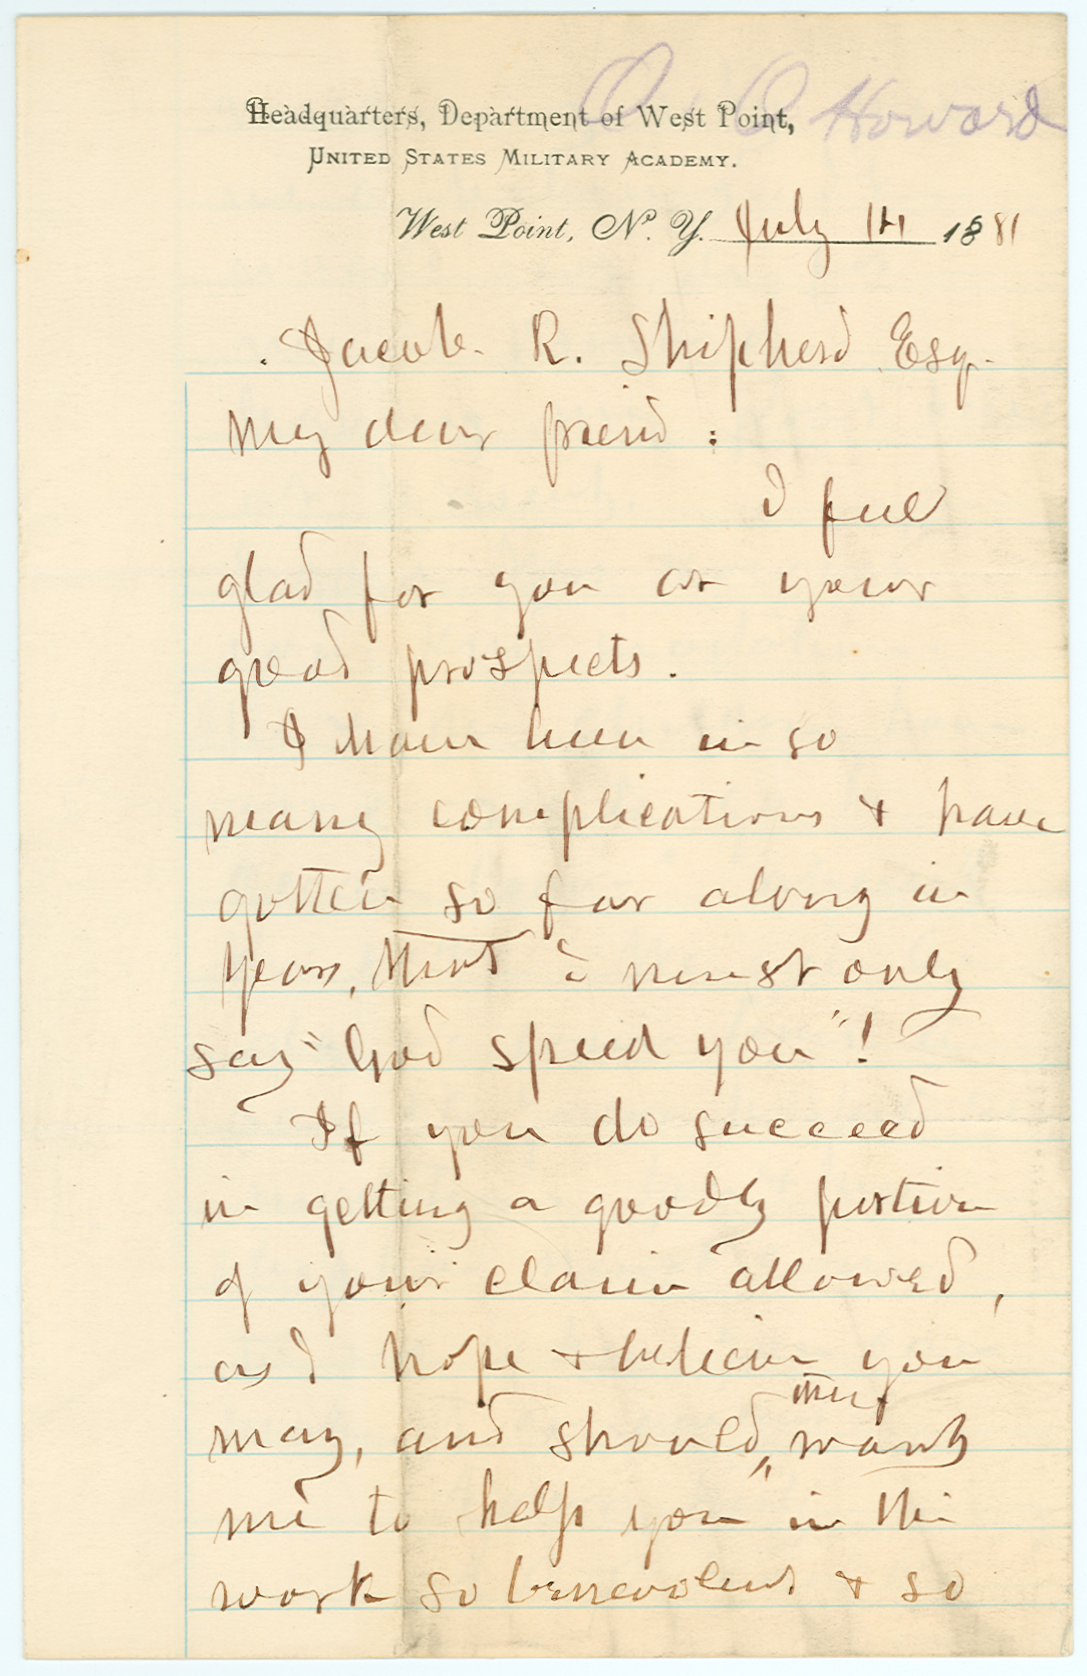 O O Howard
Headquarters, Department of West Point,
UNITED STATES MILITARY ACADEMY.
West Point, N. Y. July 14 1881
Jacob R. Shipherd Esq.
My dear friend:
I feel
glad for you at your
good prospects.
I have been in so
many complications & have
gotten so far along in
years, that I must only
say "God speed you"!
If you do succeed
in getting a goodly portion
of your claim allowed,
as I hope & believe you
may, and should they
want
me to help you in the
work so benevolent & so